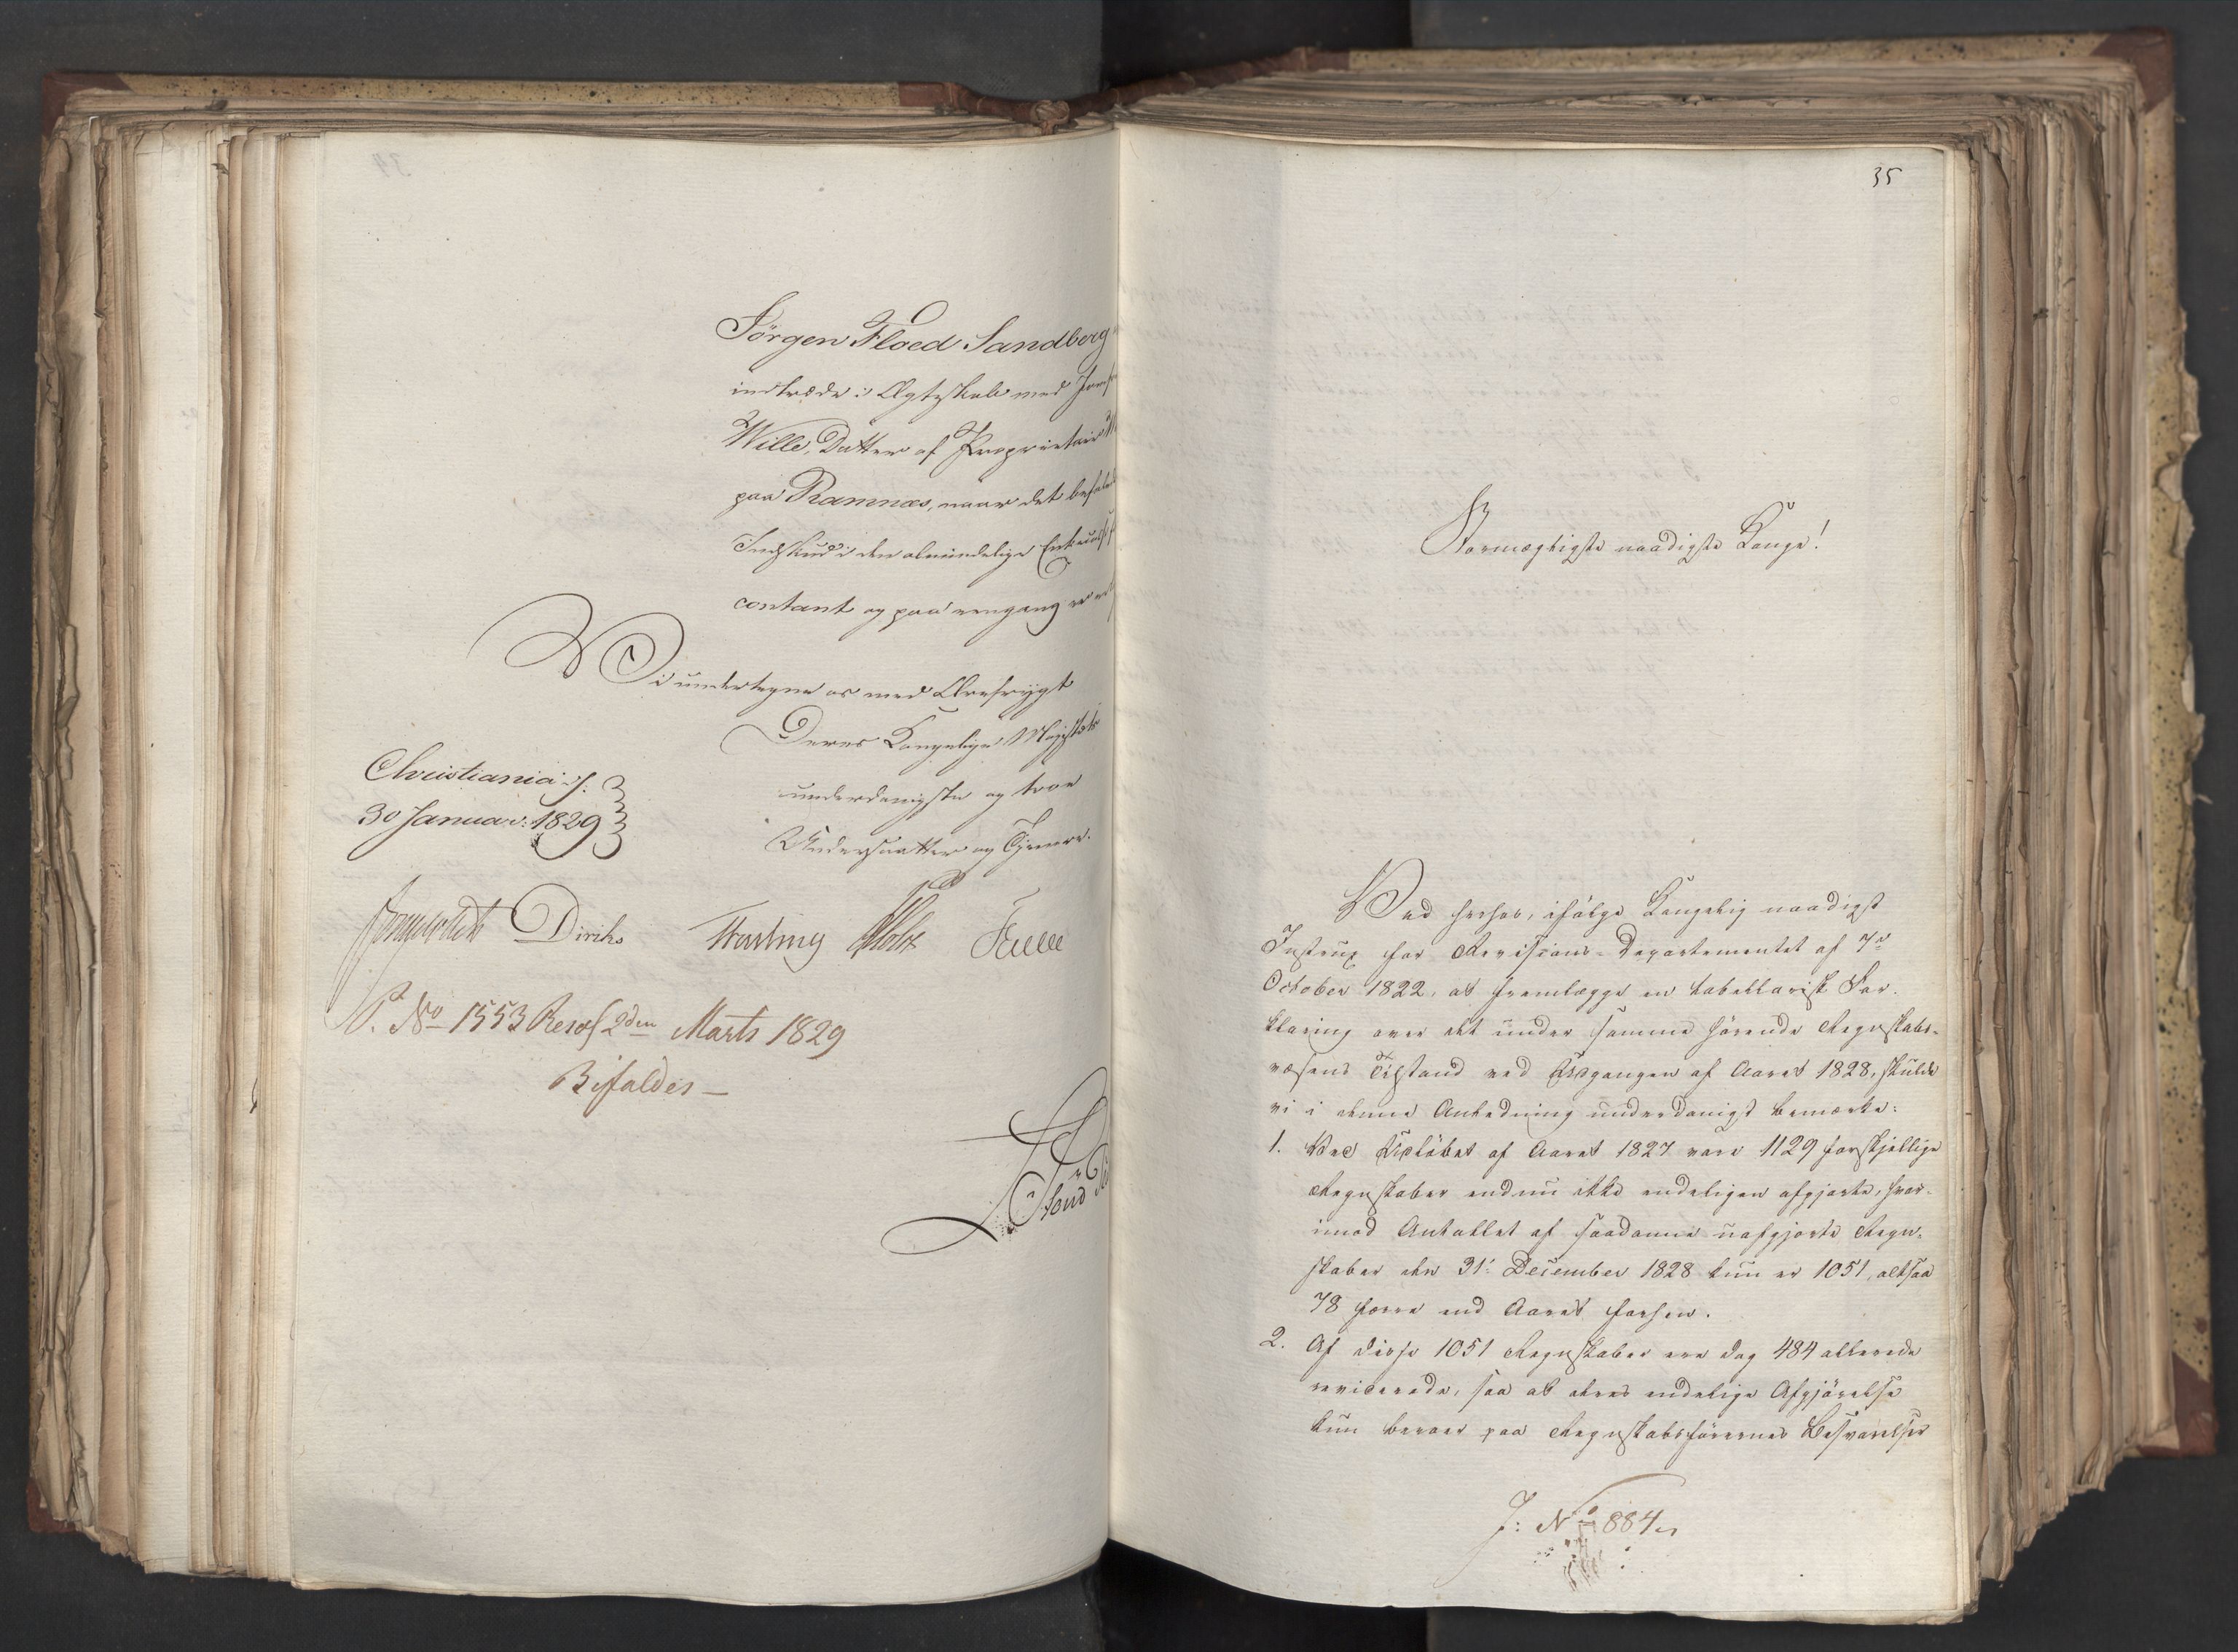 Jörgen Floed Sandberg
indtræde i Ægteskab med
Wille, Datter af Proprietair
paa Ramnæs, naar det befalede
Indskud i den almindelige
contant og paa eengang er
Vi undertegne os med Ærefrygt
Deres Kongelige Majestæts
underdanigste og troe
Undersaatter og Tjenere.
Christiania d:
30 Januar: 1829
Diriks Holst
P. No 1553 Resol 2den Marts 1829
Bifaldes —
35
Stormægtigste naadigste Konge!
Ved herhos, ifölge Kongelig naadigst
Instrux for Revisions-Departementet af 7d
October 1822, at fremlægge en tabellarisk For-
klaring over det under samme hörende Regnskabs-
væsens Tilstand ved Udgangen af Aaret 1828, skulde
vi i denne Anledning underdanigst bemærke:
1. Ved Udlöbet af Aaret 1827 vare 1129 forskjellige
Regnskaber endnu ikke endeligen afgjorte, hvor-
imod Antallet af saadanne uafgjorte Regn-
skaber den 31: December 1828 kun er 1051, altsaa
78 færre end Aaret forhen.
2. Af disse 1051 Regnskaber ere dog 484 allerede
reviderede, saa at deres endelige Afgjörelse
kun beroer paa Regnskabsförernes Besvarelser
J: No 884